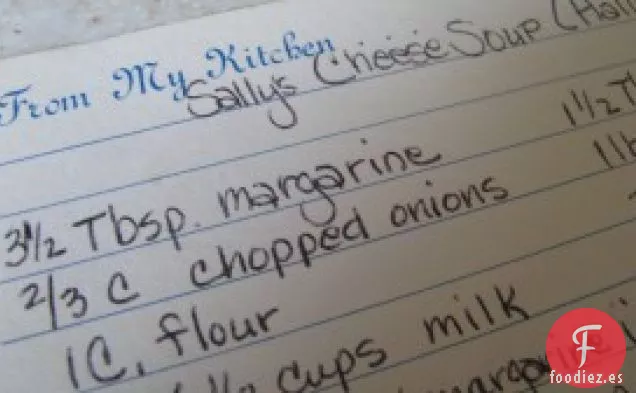 From My Kitchen
Sally's Cheese Soup (Hal
3 1/2 Tbsp. margarine 1 1/2 Tb
2/3 C chopped onions 1 lb
1 C. flour
1/2 cups milk
margarine
F
foodiez.es